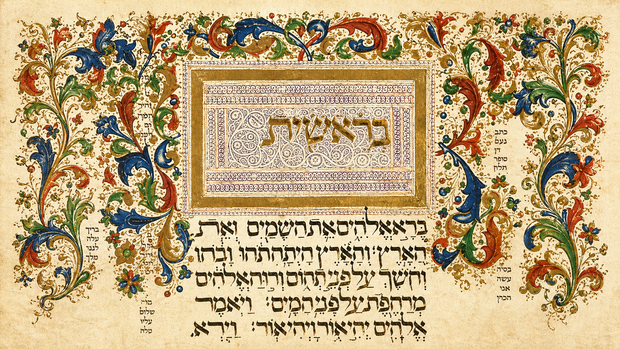 בראשית
ברא אלהים את השמים ואת
הארץ׃ והארץ היתה תהו ובהו
וחשך על פני תהום ורוח אלהים
מרחפת על פני המים׃ ויאמר
אלהים יהי אור ויהי אור׃ וירא
כתב
נעם
סופר
עשה
אני
שלום
עליו